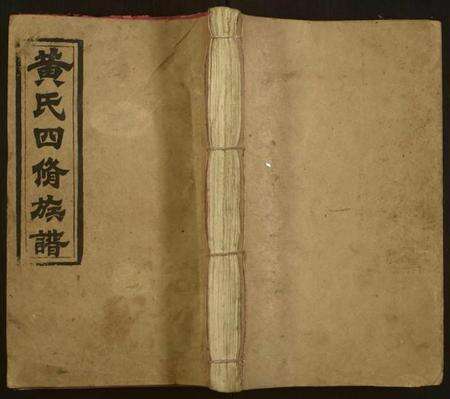 黄氏四脩族譜